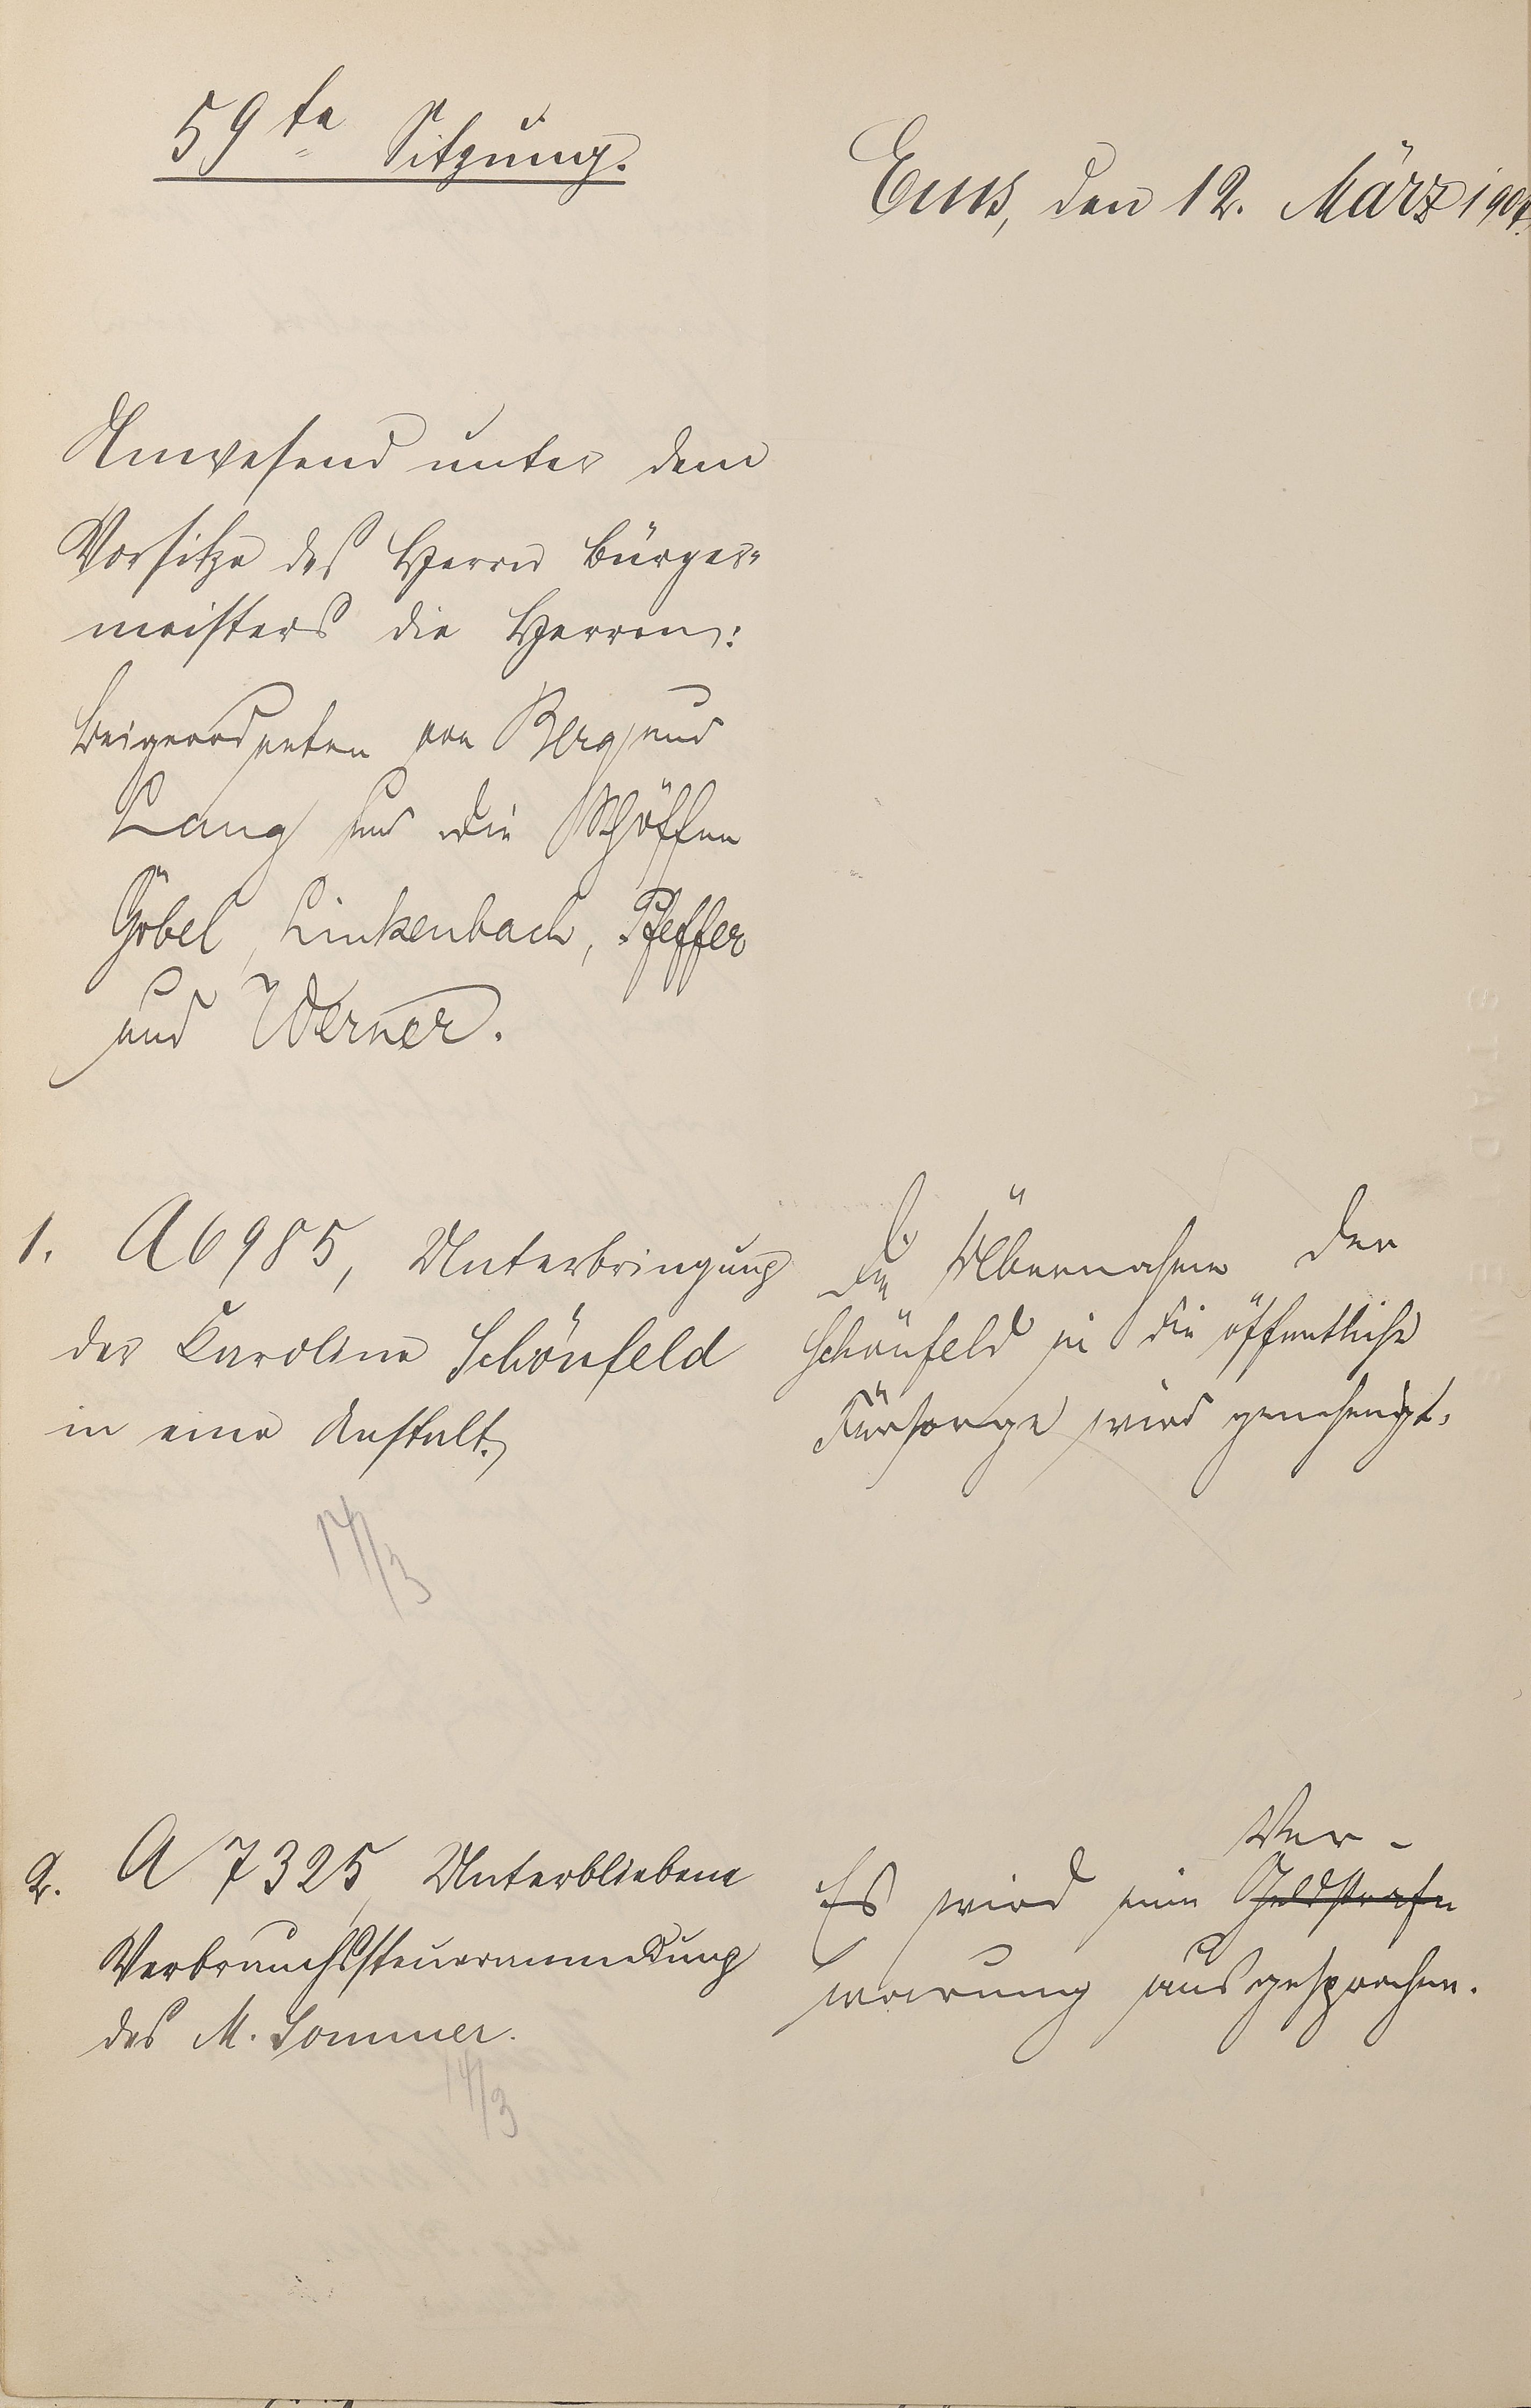 59te Sitzung.
Ems, den 12. März 1904.
Anwesend unter dem
Vorsitze des Herrn Bürger=
meisters die Herren:
Beigeordneten von Berg und
Lang und die Schöffen
Göbel, Linkenbach, Pfeffer
und Werner.
1. A 6985, Unterbringung
der Karoline Schönfeld
in eine Anstalt.
14/3
Die Übernahme der
Schönfeld in die öffentliche
Fürsorge wird genehmigt.
2. A 7325, Unterbliebene
Verbrauchssteueranmeldung
des M. Sommer.
14/3
Ver-
Es wird eine Geldstrafe
warnung ausgesprochen.